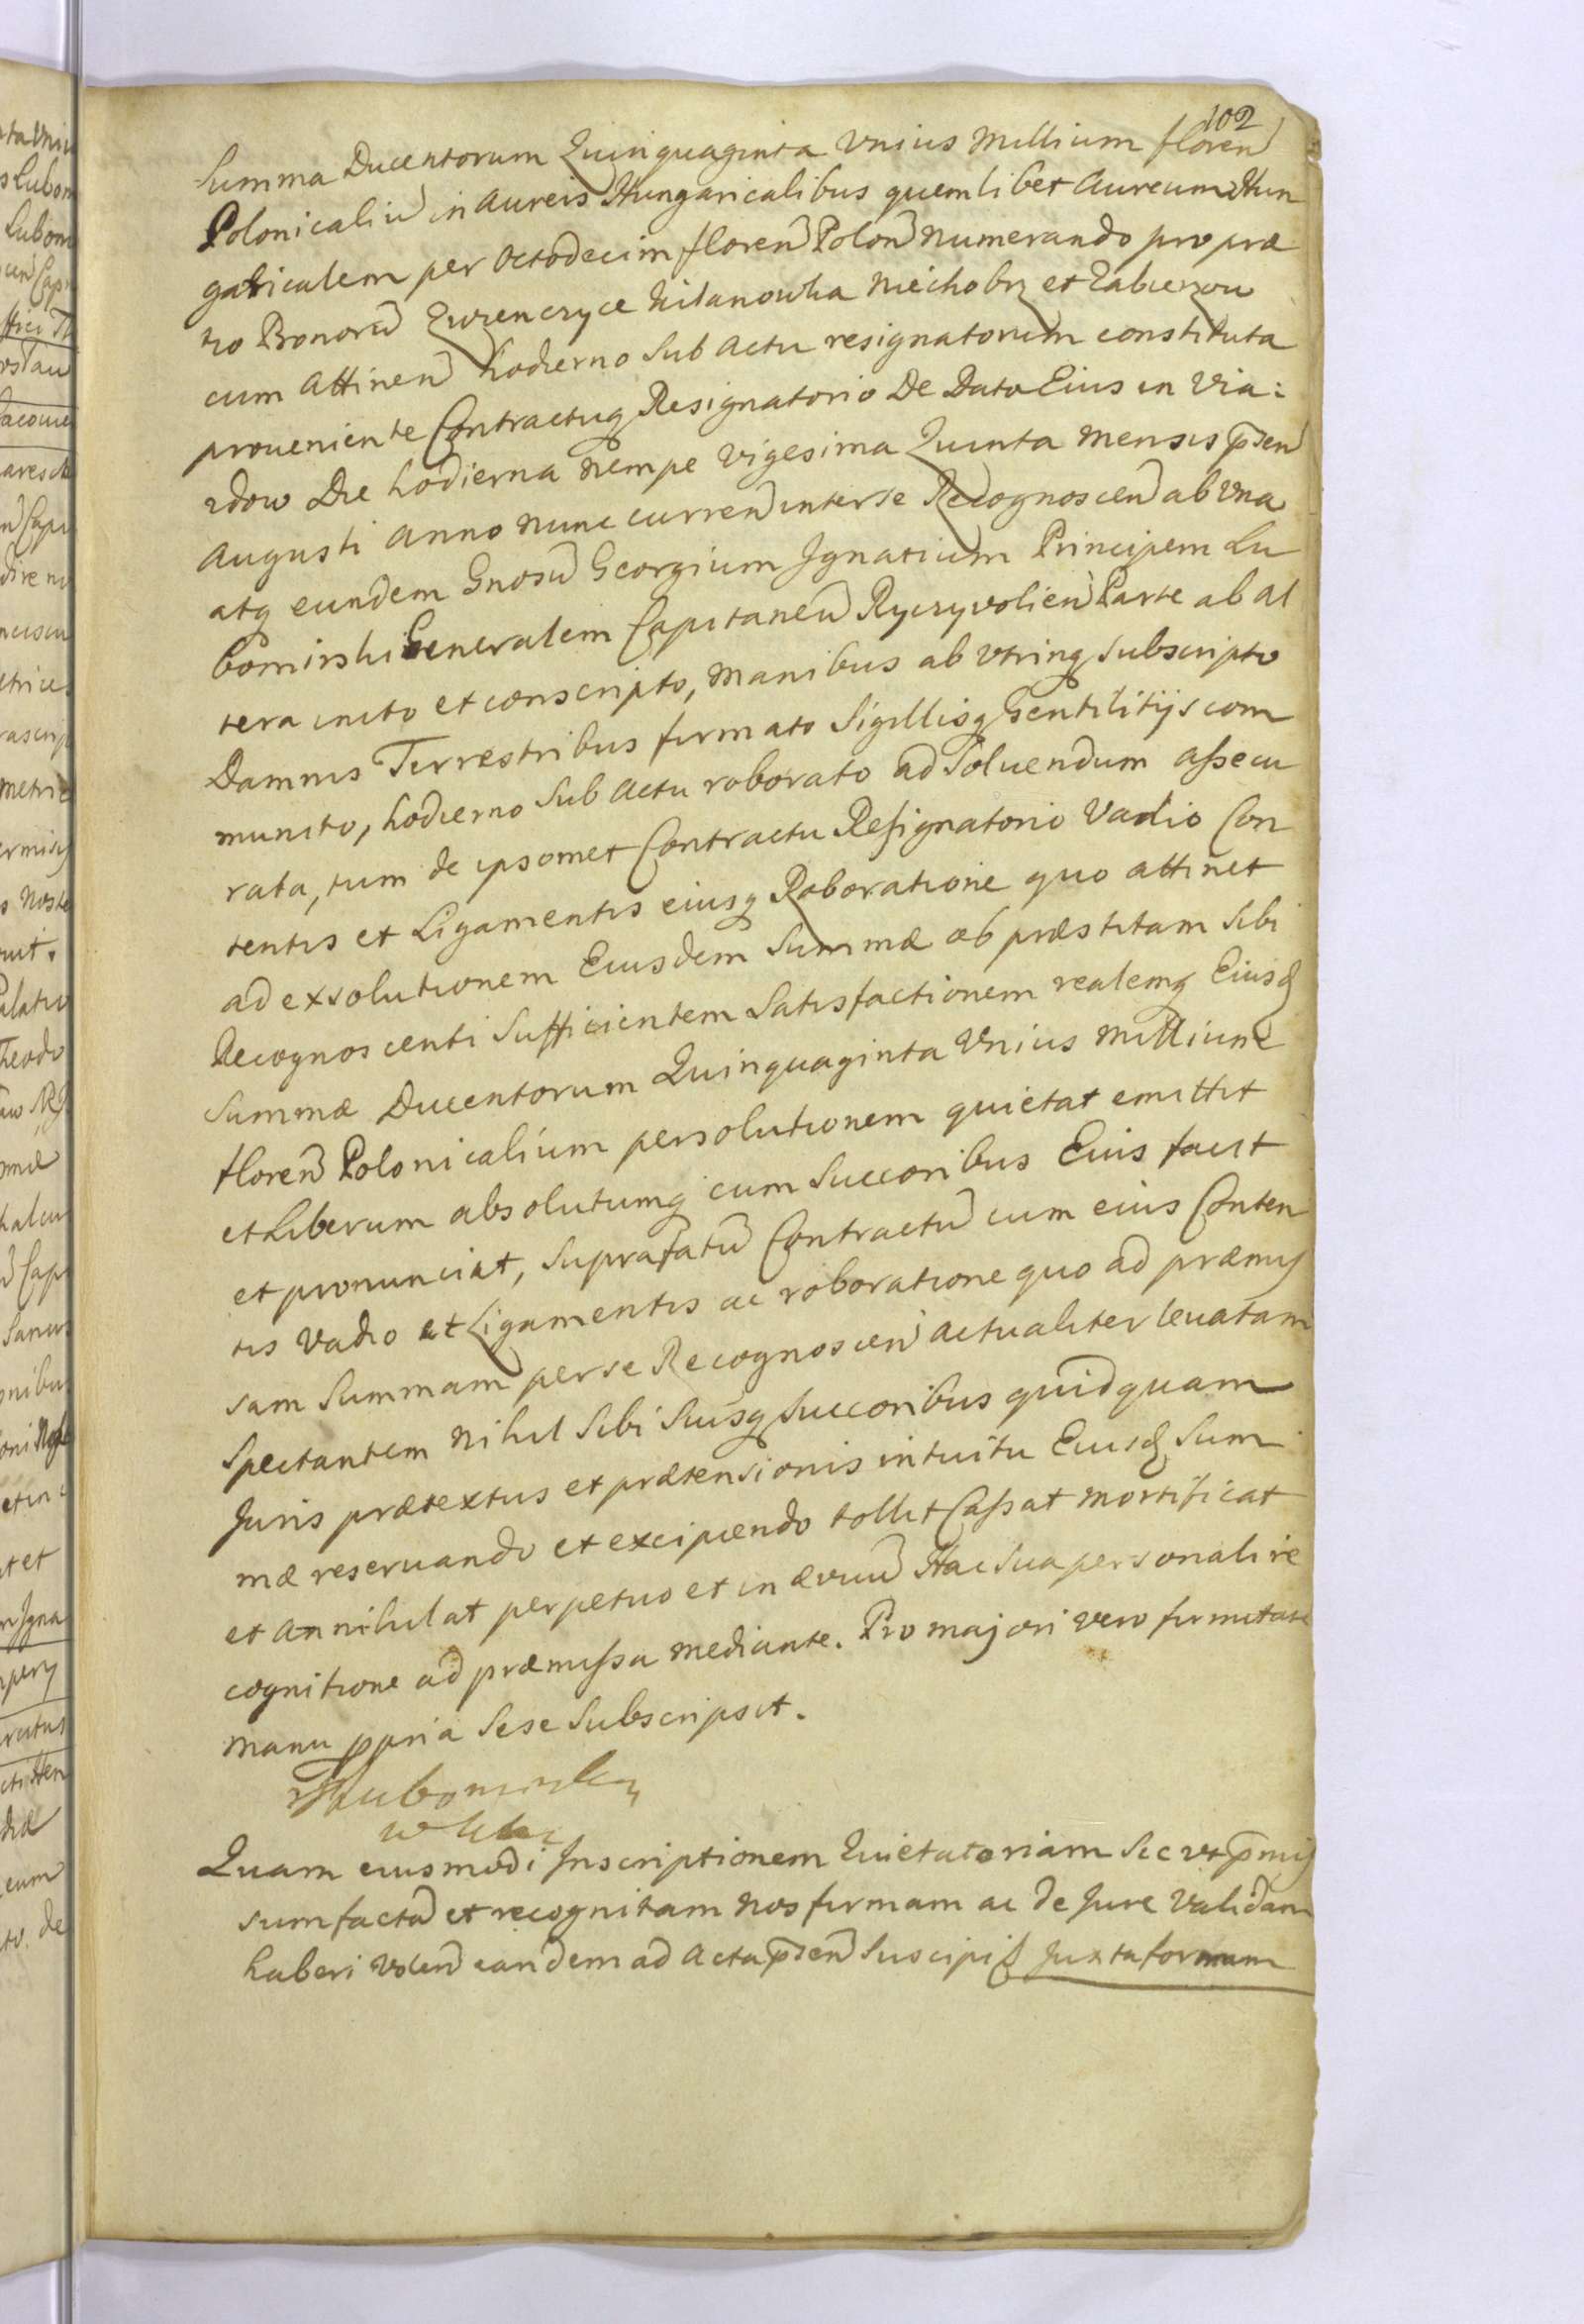 102
Summa Ducentorum Quinquaginta Unius Millium floren
Polonicaliu in Aureis Hungaricalibus quemlibet Aureum Hun
garicalem per Octodecim floren Polon numerando pro præ
tio Bonoru Zwrenczyce Milanowka Niechobrz et Zabierzow
cum Attinen hodierno Sub Actu resignatorum constituta
proueniente Contractuq Resignatorio De Dato Eius in Via:
zdow Die hodierna nempe Vigesima Quinta mensis p̄sen
Augusti Anno nunc curren inter se Recognoscen ab Vna
atq eundem Gnosu Georgium Ignatium Principem Lu
bomirski Generalem Capitaneu Ryczyvolien Parte ab al
tera inito et conscripto, manibus ab Vtrinq subscripto
Damnis Terrestribus firmato Sigillisq Gentilitijs com
munito, hodierno Sub Actu roborato ad Soluendum assecu
rata, tum de ipsomet Contractu Resignatorio Vadio Con
tentis et Ligamentis eiusq Roboratione quo attinet
ad exsolutionem Eiusdem Summæ ob præstitam Sibi
Recognoscenti Sufficientem Satisfactionem realemq Eiusd
Summæ Ducentorum Quinquaginta Vnius Millium
floren Polonicalium persolutionem quietat emittit
et Liberum absolutumq cum Succoribus Eius facit
et pronunciat, Suprafatu Contractu cum eius Conten
tis Vadio et Ligamentis ac roboratione quo ad præmis
sam Summam per se Recognoscen actualiter leuatam
Spectantem Nihil Sibi Suisq Succoribus quidquam
Juris prætextus et prætensionis intuitu Eiusd Sum
mæ reseruando et excipiendo tollit Cassat Mortificat
et Annihilat perpetuo et in ævuu Hac Sua personali re
cognitione ad præmissa mediante. Pro majori vero firmitate
manu ppria Sese Subscripsit.
Lubomirsky
Quam eiusmodi Inscriptionem Quietatoriam Sic vt p̄mis
sum facta et recognitam nos firmam ac de Jure Validam
haberi Volen eandem ad Acta p̄sen Suscipi Juxta formam